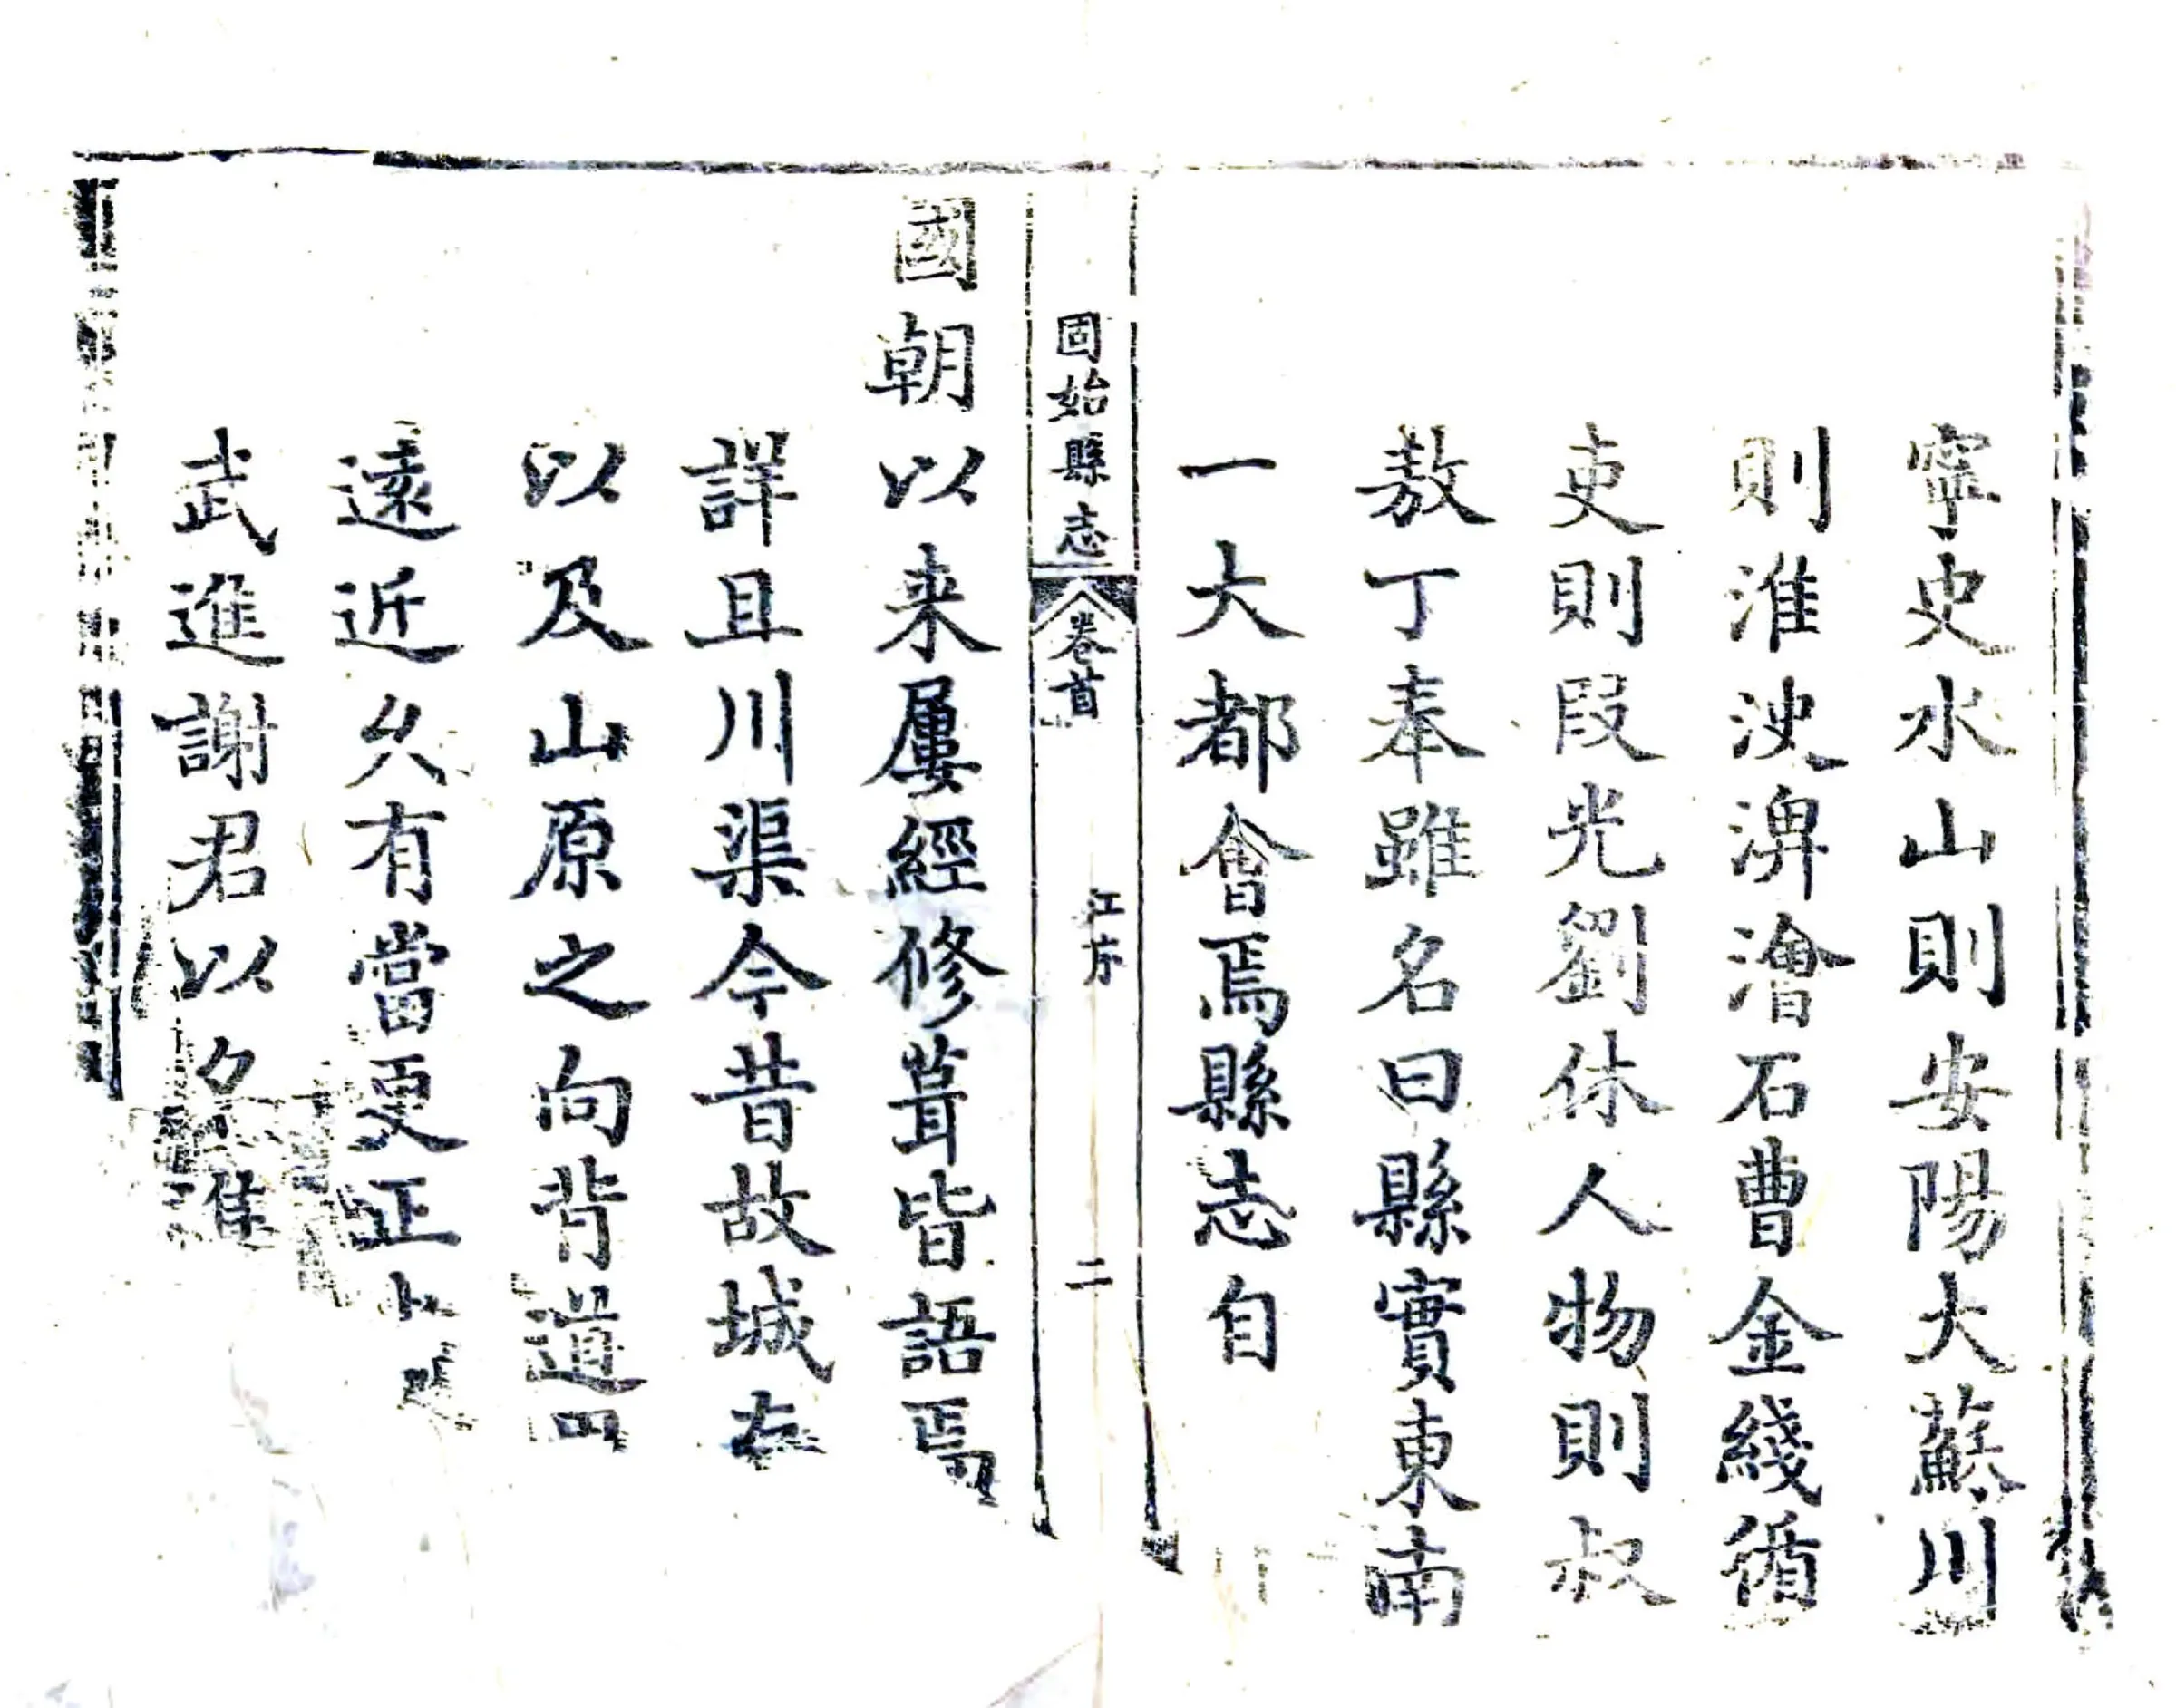 寧史水山則安陽大蘇川
則淮決淠澮石曹金綫循
吏則段光劉休人物則叔
敖丁奉雖名曰縣實東南
一大都會焉縣志自
固始縣志
卷首
江序
二
國朝以来屢經修葺皆語焉
詳且川渠今昔故城存
以及山原之向背道四
遠近久有當更正
武進謝君以名進